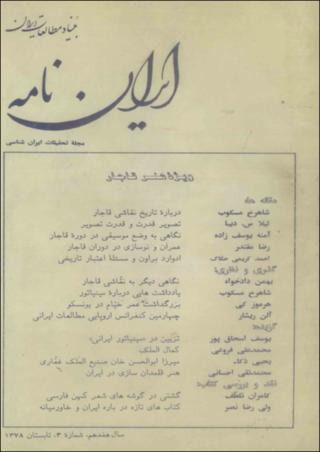 بنیاد مطالعات ایران
ایران نامه
مجلهٔ تحقیقات ایران شناسی
ویژهٔ هنر قاجار
مقاله ها:
شاهرخ مسکوب دربارهٔ تاریخ نقاشی قاجار
لیلا س. دیبا تصویر قدرت و قدرت تصویر
آمنه یوسف زاده نگاهی به وضع موسیقی در دورهٔ قاجار
رضا مقتدر عمران و نوسازی در دوران قاجار
احمد کریمی حکاک ادوارد براون و مسئلهٔ اعتبار تاریخی
گذری و نظری:
بهمن دادخواه نگاهی دیگر به نقاشی قاجار
شاهرخ مسکوب یادداشت هایی دربارهٔ مینیاتور
هرموز کی بزرگداشت عمر خیّام در یونسکو
آلن ریشار چهارمین کنفرانس اروپایی مطالعات ایرانی
گزیده:
یوسف اسحاق پور تزیین در «مینیاتور ایرانی»
محمدعلی فروغی کمال الملک
یحیی ذکاء میرزا ابوالحسن خان صنیع الملک غفاری
محمدتقی احسانی هنر قلمدان سازی در ایران
نقد و بررسی کتاب:
کامران تلطف گشتی در گوشه های شعر کهن فارسی
ولی رضا نصر کتاب های تازه در باره ایران و خاورمیانه
سال هفدهم، شمارهٔ ۳، تابستان ۱۳۷۸